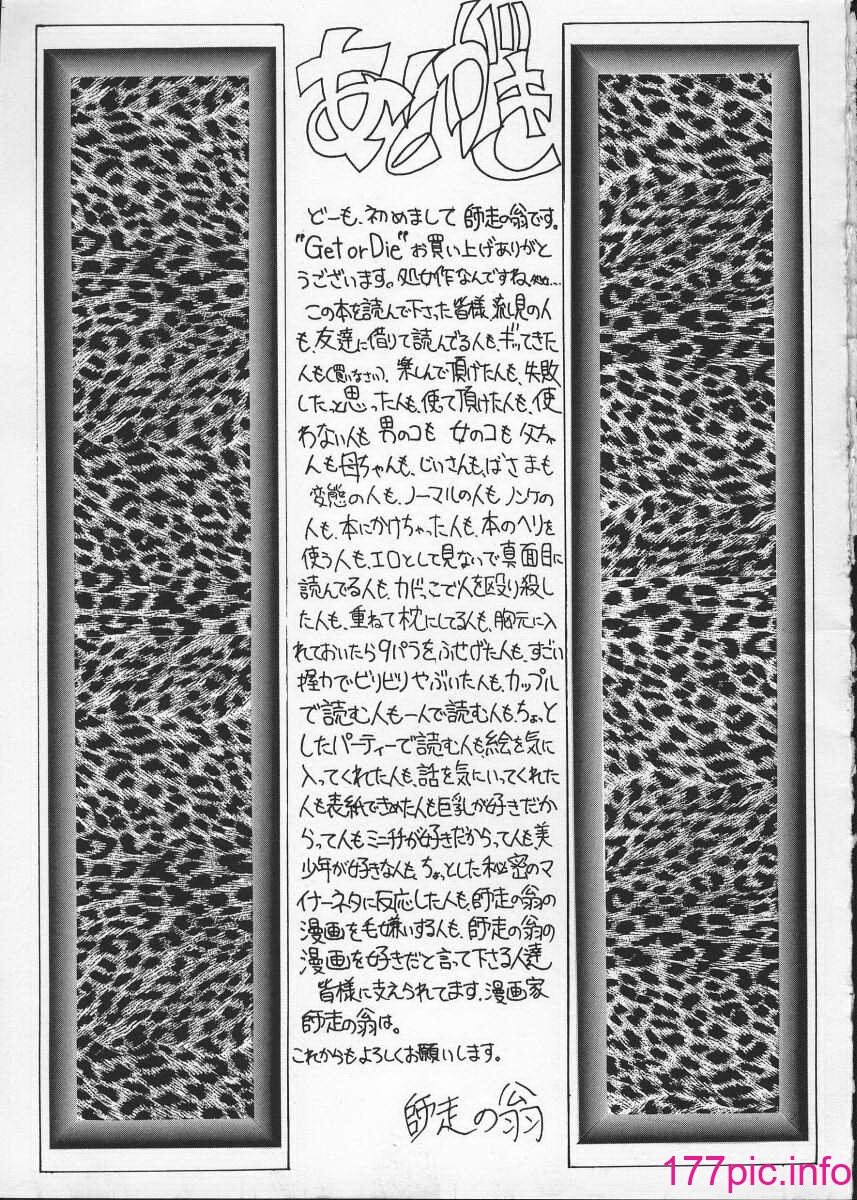 あとがき
どーも、初めまして 師走の翁です。
"Get or Die" お買い上げありがと
うございます。処女作なんですね、
この本を読んで下さった皆様、流し見の人
も、友達に借りて読んでる人も、ギってきた
人も(買いなさい)、楽しんで頂けた人も、失敗
したっと思った人も、使て頂けた人も、使
わない人も 男のコも 女のコも 父ちゃ
人も母ちゃんも、じいさんも、ばさまも
変態の人も、ノーマルの人も ノンケの
人も、本にかけちゃった人も、本のヘリを
使う人も、エロとして見ないで真面目に
読んでる人も、カドっこで人を殴り殺し
た人も、重ねて枕にしてる人も、胸元に入
れておいたら9パラを、ふせげた人も、すごい
握力でビリビリやぶいた人も、カップル
で読む人も一人で読む人も、ちょっと
したパーティーで読む人も、絵を気に
入ってくれた人も、話を気にいってくれた
人も表紙できめた人も巨乳が好きだか
らって人もミニ乳が好きだからって人も美
少年が好きな人も、ちょっとした秘密のマ
イナーネタに反応した人も、師走の翁の
漫画を毛嫌いする人も、師走の翁の
漫画を好きだと言って下さる人達
皆様に支えられてます、漫画家
師走の翁は。
これからもよろしくお願いします。
師走の翁
177pic.info